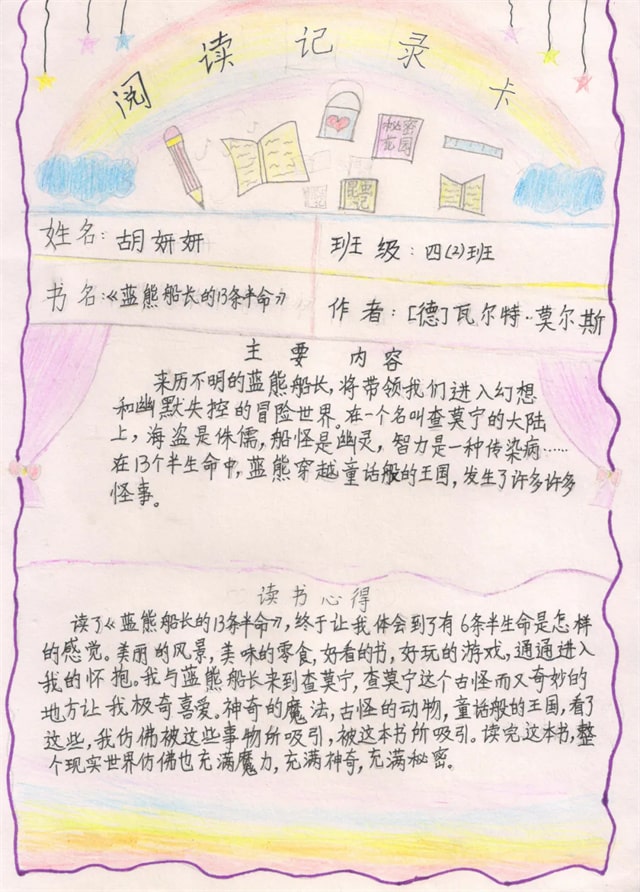 阅读记录卡
秘密花园
昆虫记
姓名：胡妍妍
班级：四(2)班
书名：《蓝熊船长的13条半命》
作者：[德]瓦尔特·莫尔斯
主要内容
来历不明的蓝熊船长，将带领我们进入幻想
和幽默失控的冒险世界。在一个名叫查莫宁的大陆
上，海盗是侏儒，船怪是幽灵，智力是一种传染病……
在13个半生命中，蓝熊穿越童话般的王国，发生了许多许多
怪事。
读书心得
读了《蓝熊船长的13条半命》，终于让我体会到了有6条半生命是怎样
的感觉。美丽的风景，美味的零食，好看的书，好玩的游戏，通通进入
我的怀抱。我与蓝熊船长来到查莫宁，查莫宁这个古怪而又奇妙的
地方让我极奇喜爱。神奇的魔法，古怪的动物，童话般的王国，看了
这些，我仿佛被这些事物所吸引，被这本书所吸引。读完这本书，整
个现实世界仿佛也充满魔力，充满神奇，充满秘密。